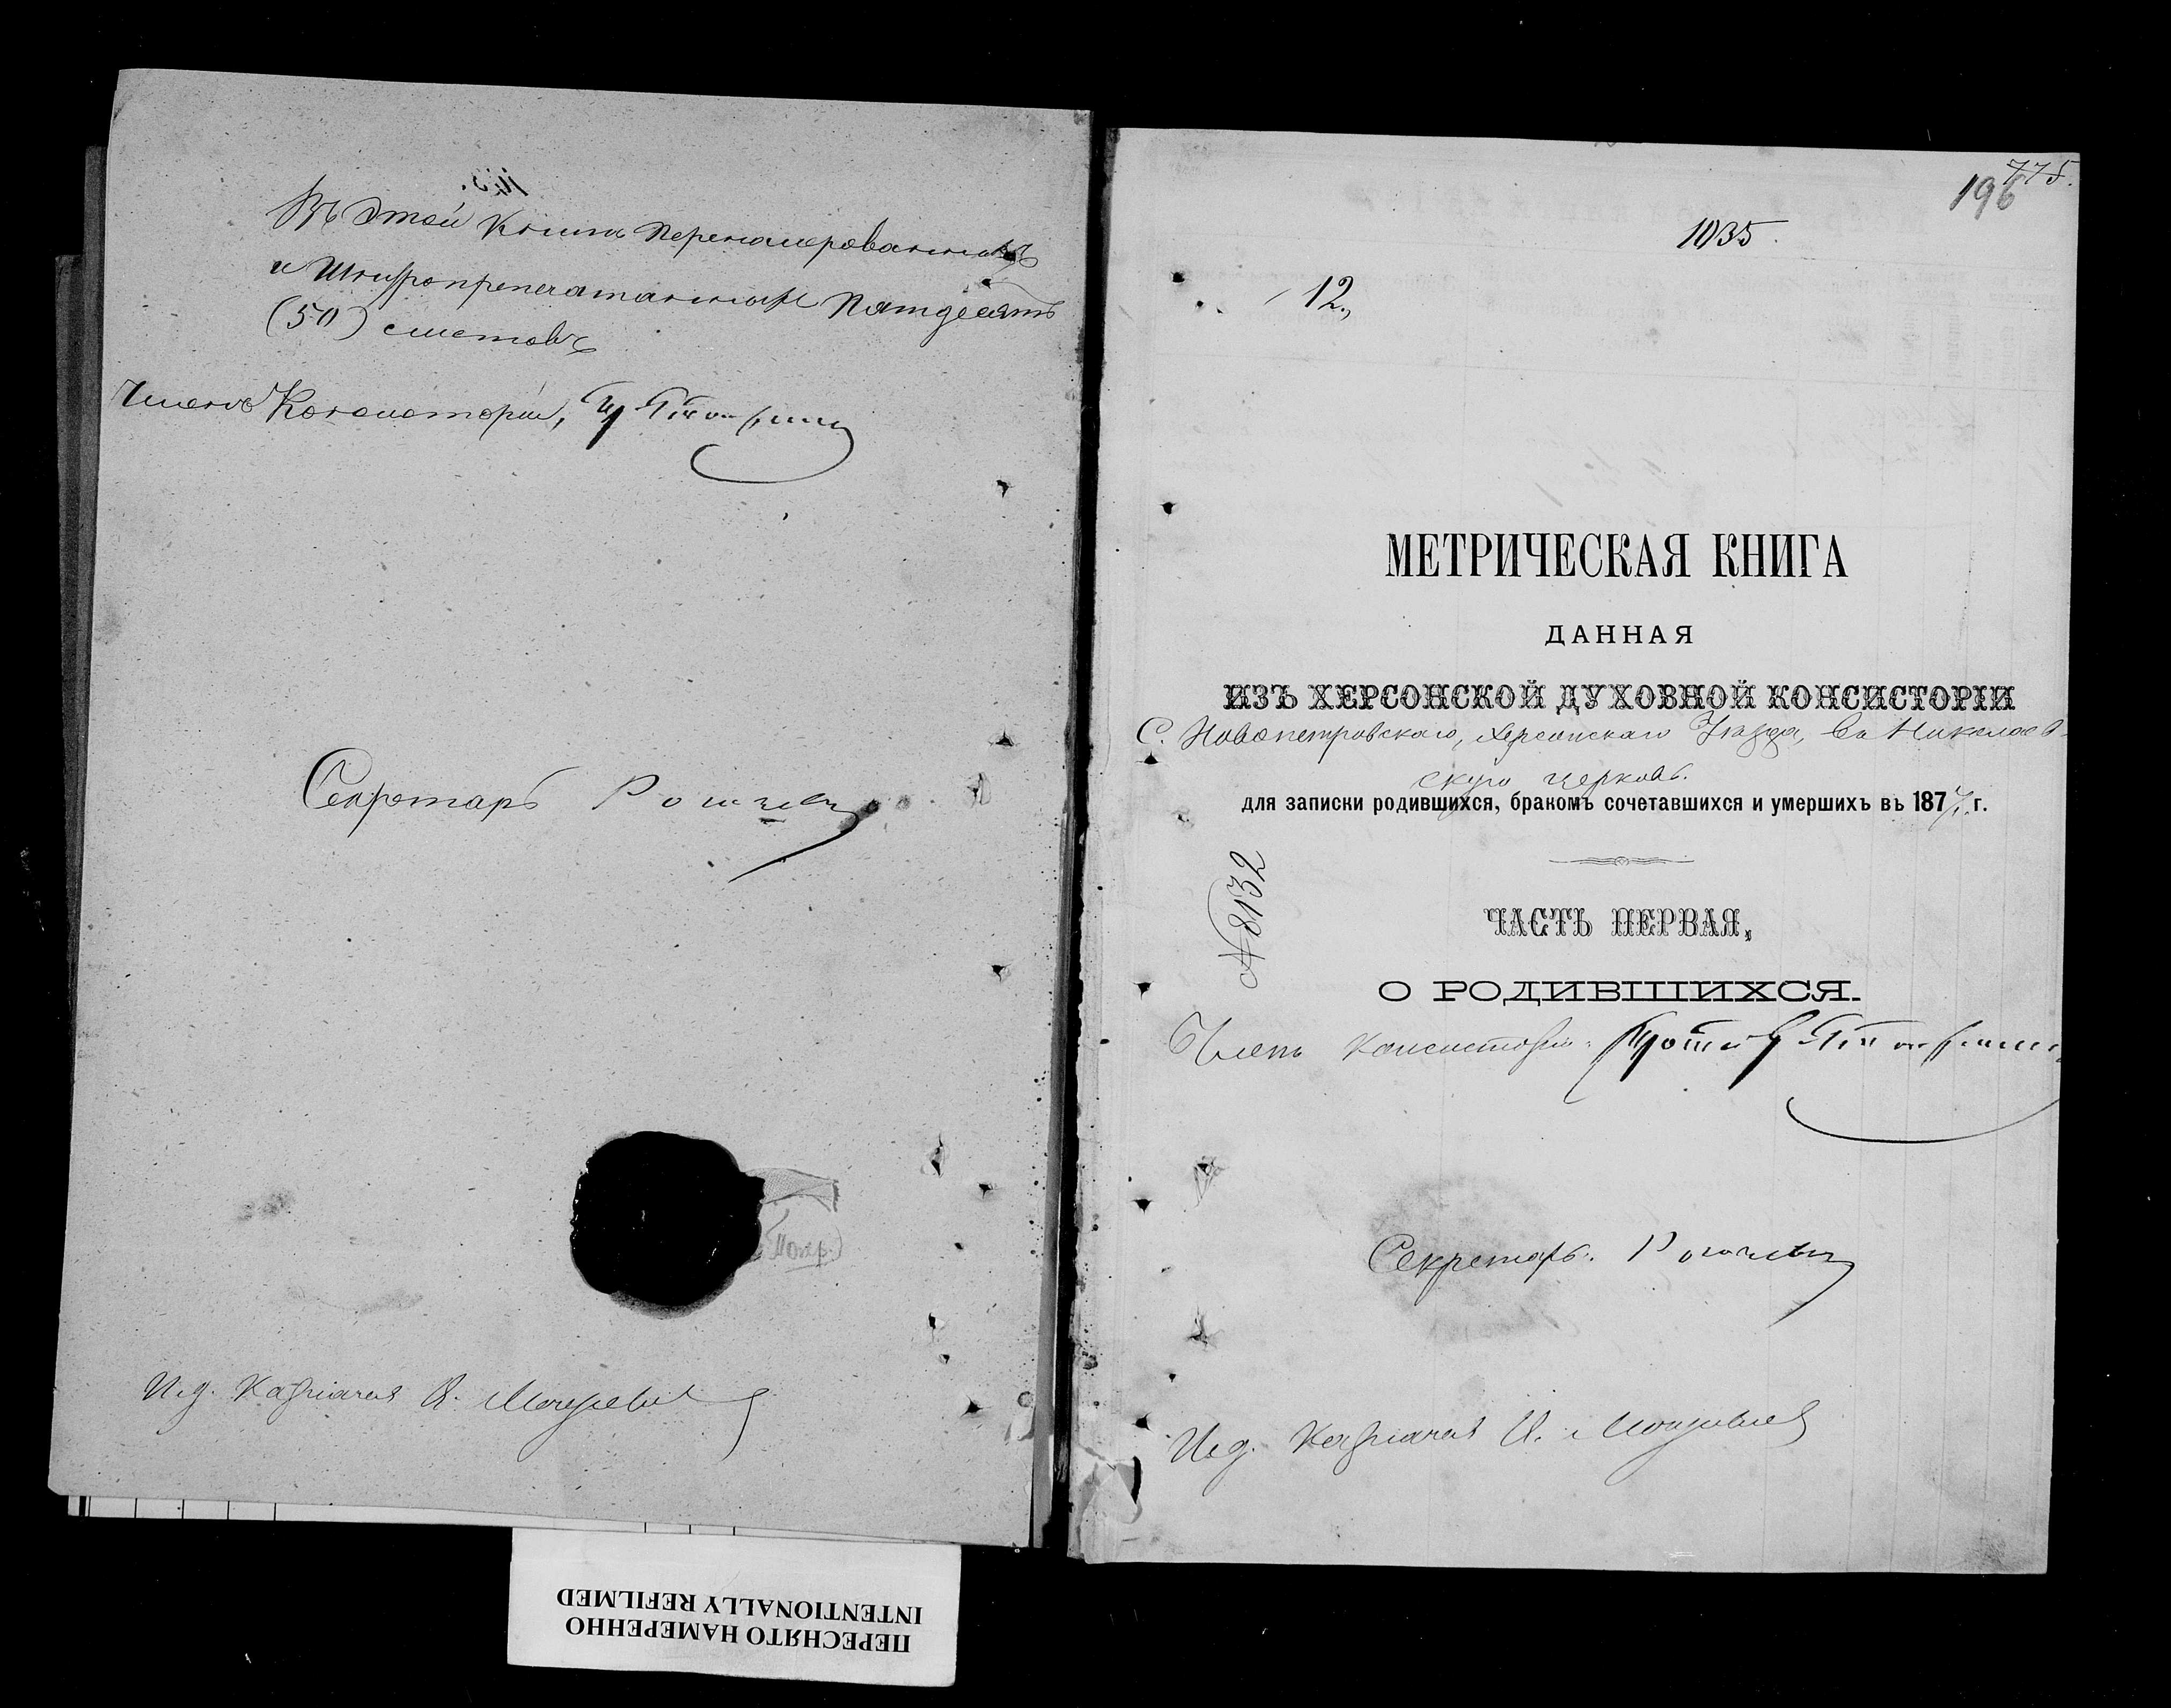 Въ этой Книгѣ перенумерованныхъ
и шнуропрепечатанныхъ пятдесятъ
(50) листовъ
Членъ Консисторіи,
Секретарь
И. д. Казначея
775.
196
1035.
12.,
МЕТРИЧЕСКАЯ КНИГА
ДАННАЯ
ИЗЪ ХЕРСОНСКОЙ ДУХОВНОЙ КОНСИСТОРІИ
С. Новопетровскаго, Херсонскаго Уѣзда, въ Николаев-
скую церковь.
для записки родившихся, бракомъ сочетавшихся и умершихъ въ 187 г.
№ 8132
ЧАСТЬ ПЕРВАЯ,
О РОДИВШИХСЯ.
Членъ Консисторіи
Секретарь.
И. д. Казначея
ПЕРЕСНЯТО НАМЕРЕННО
INTENTIONALLY REFILMED